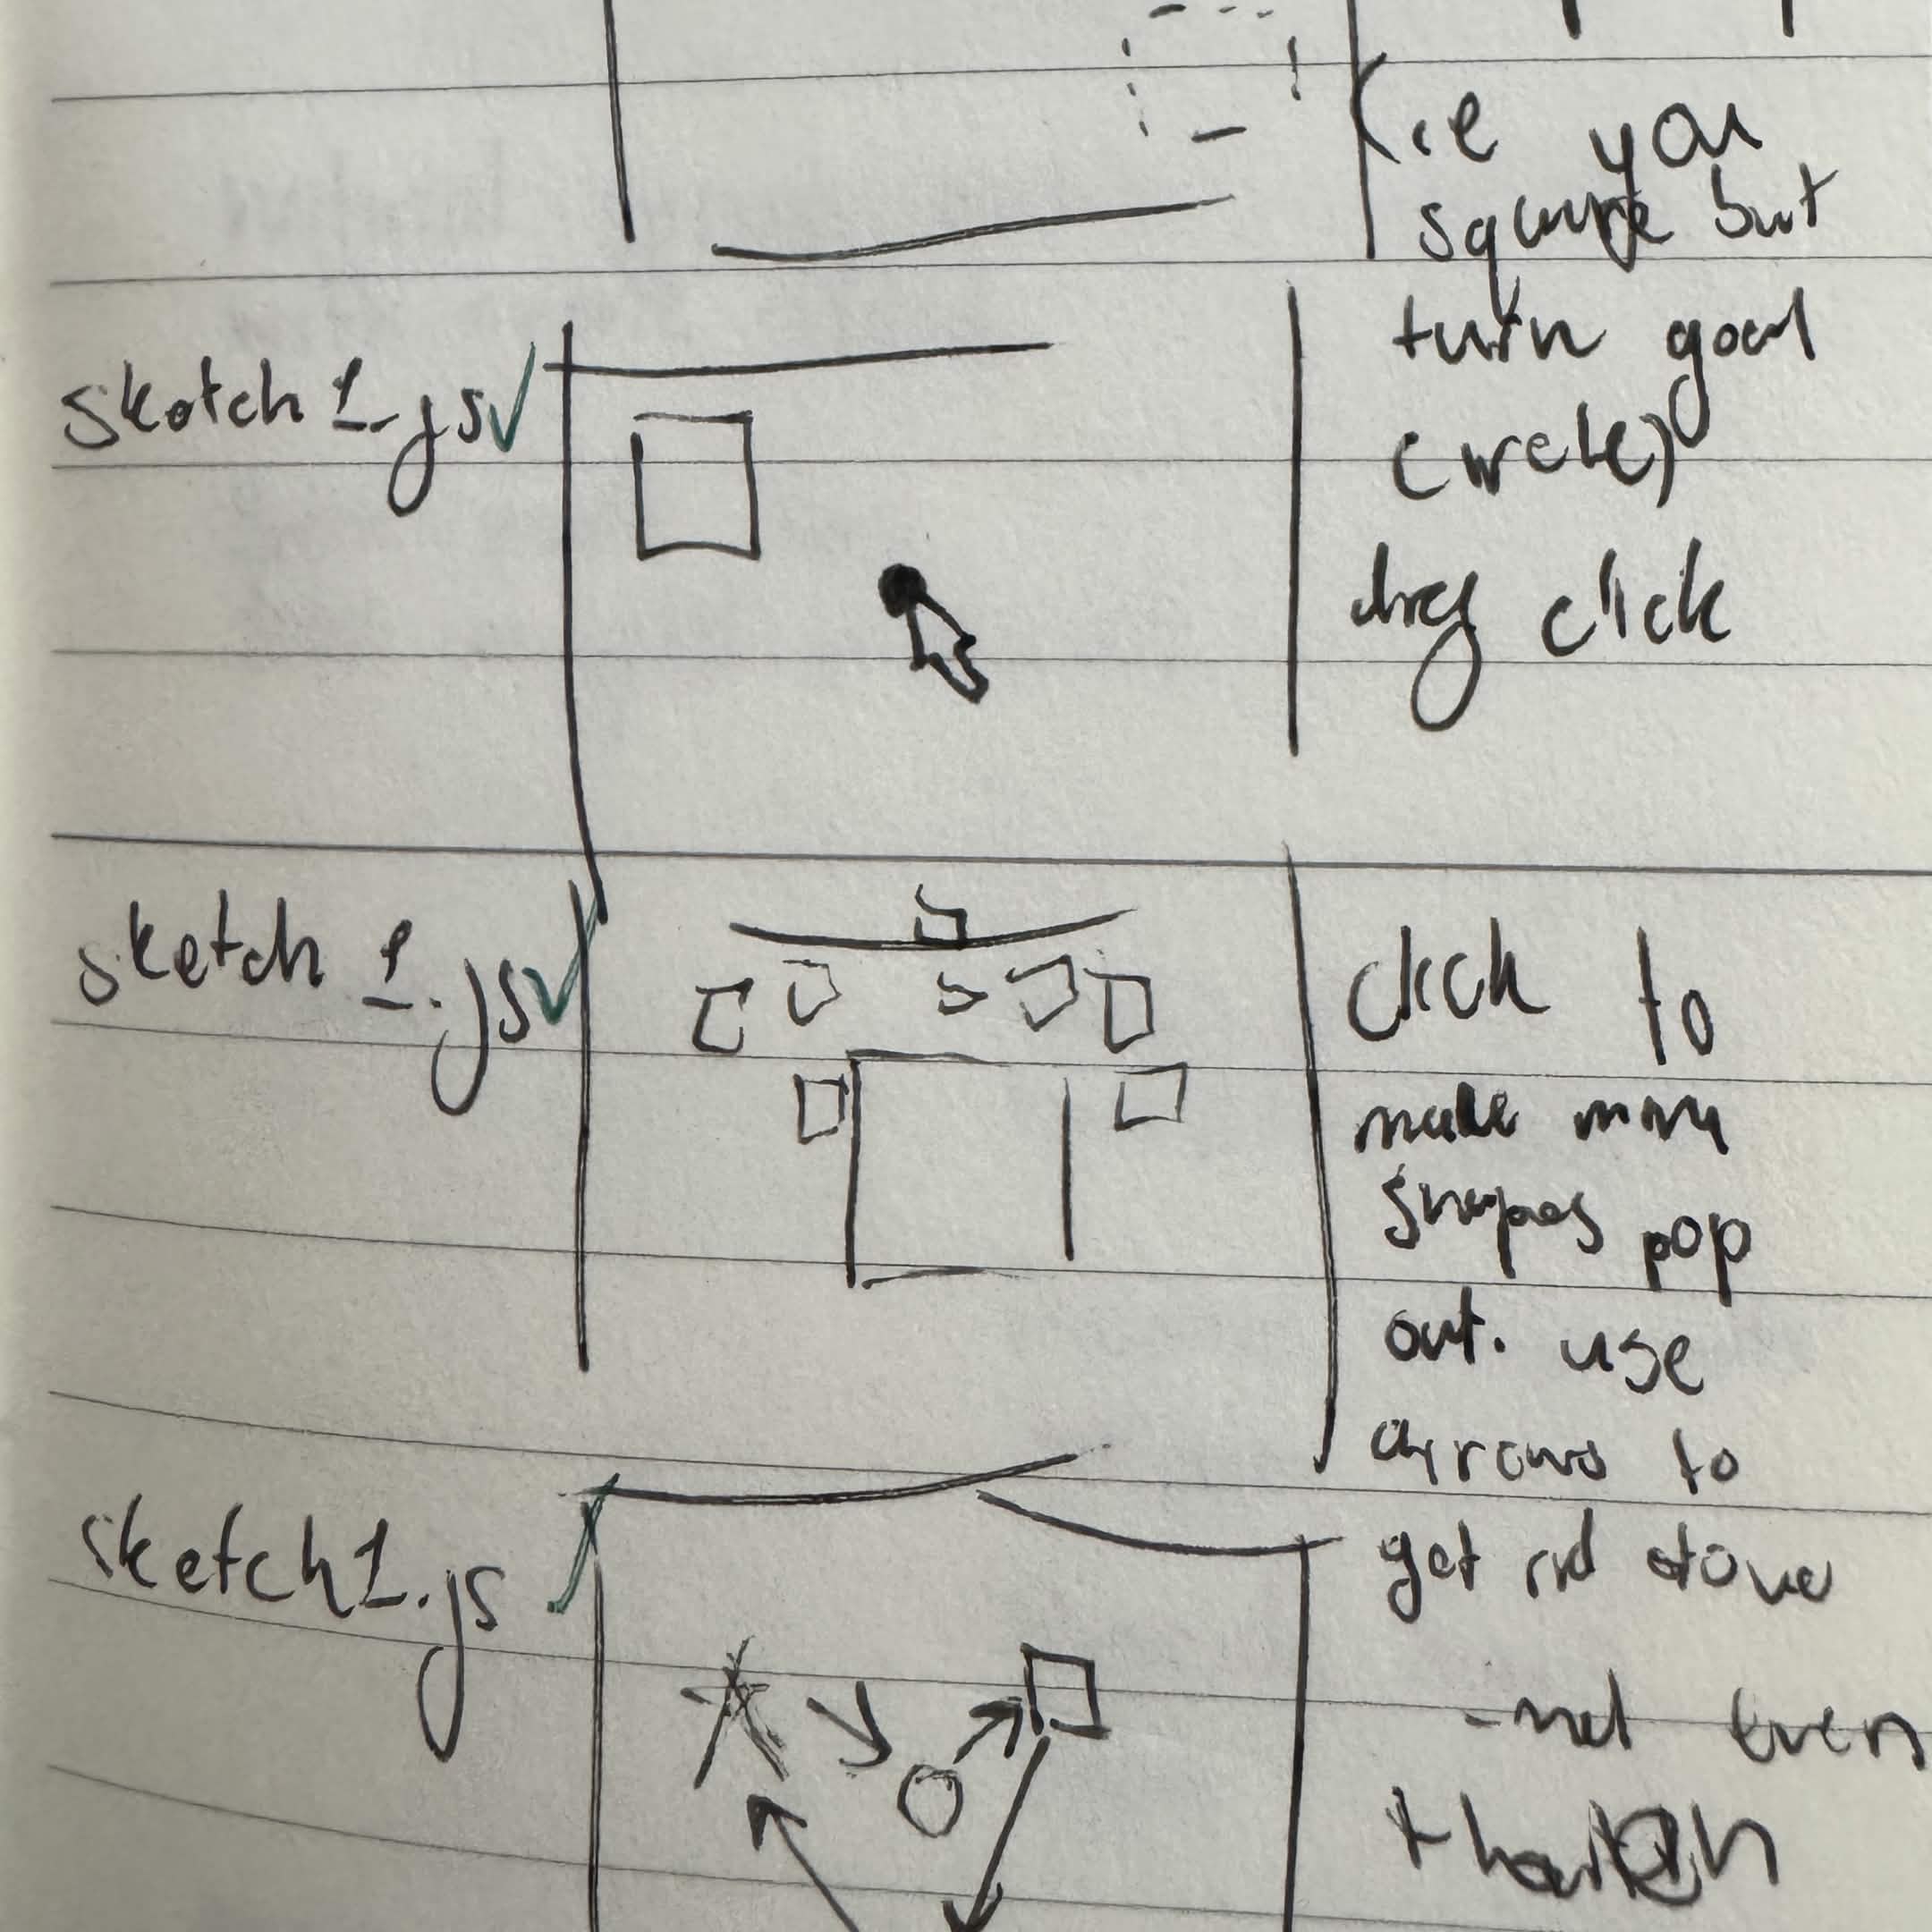 (ie you
square but
turn goal
circle)
sketch 1.js
drg click
sketch 1.js
click to
make more
shapes pop
out. use
arrows to
get rid
sketch1.js